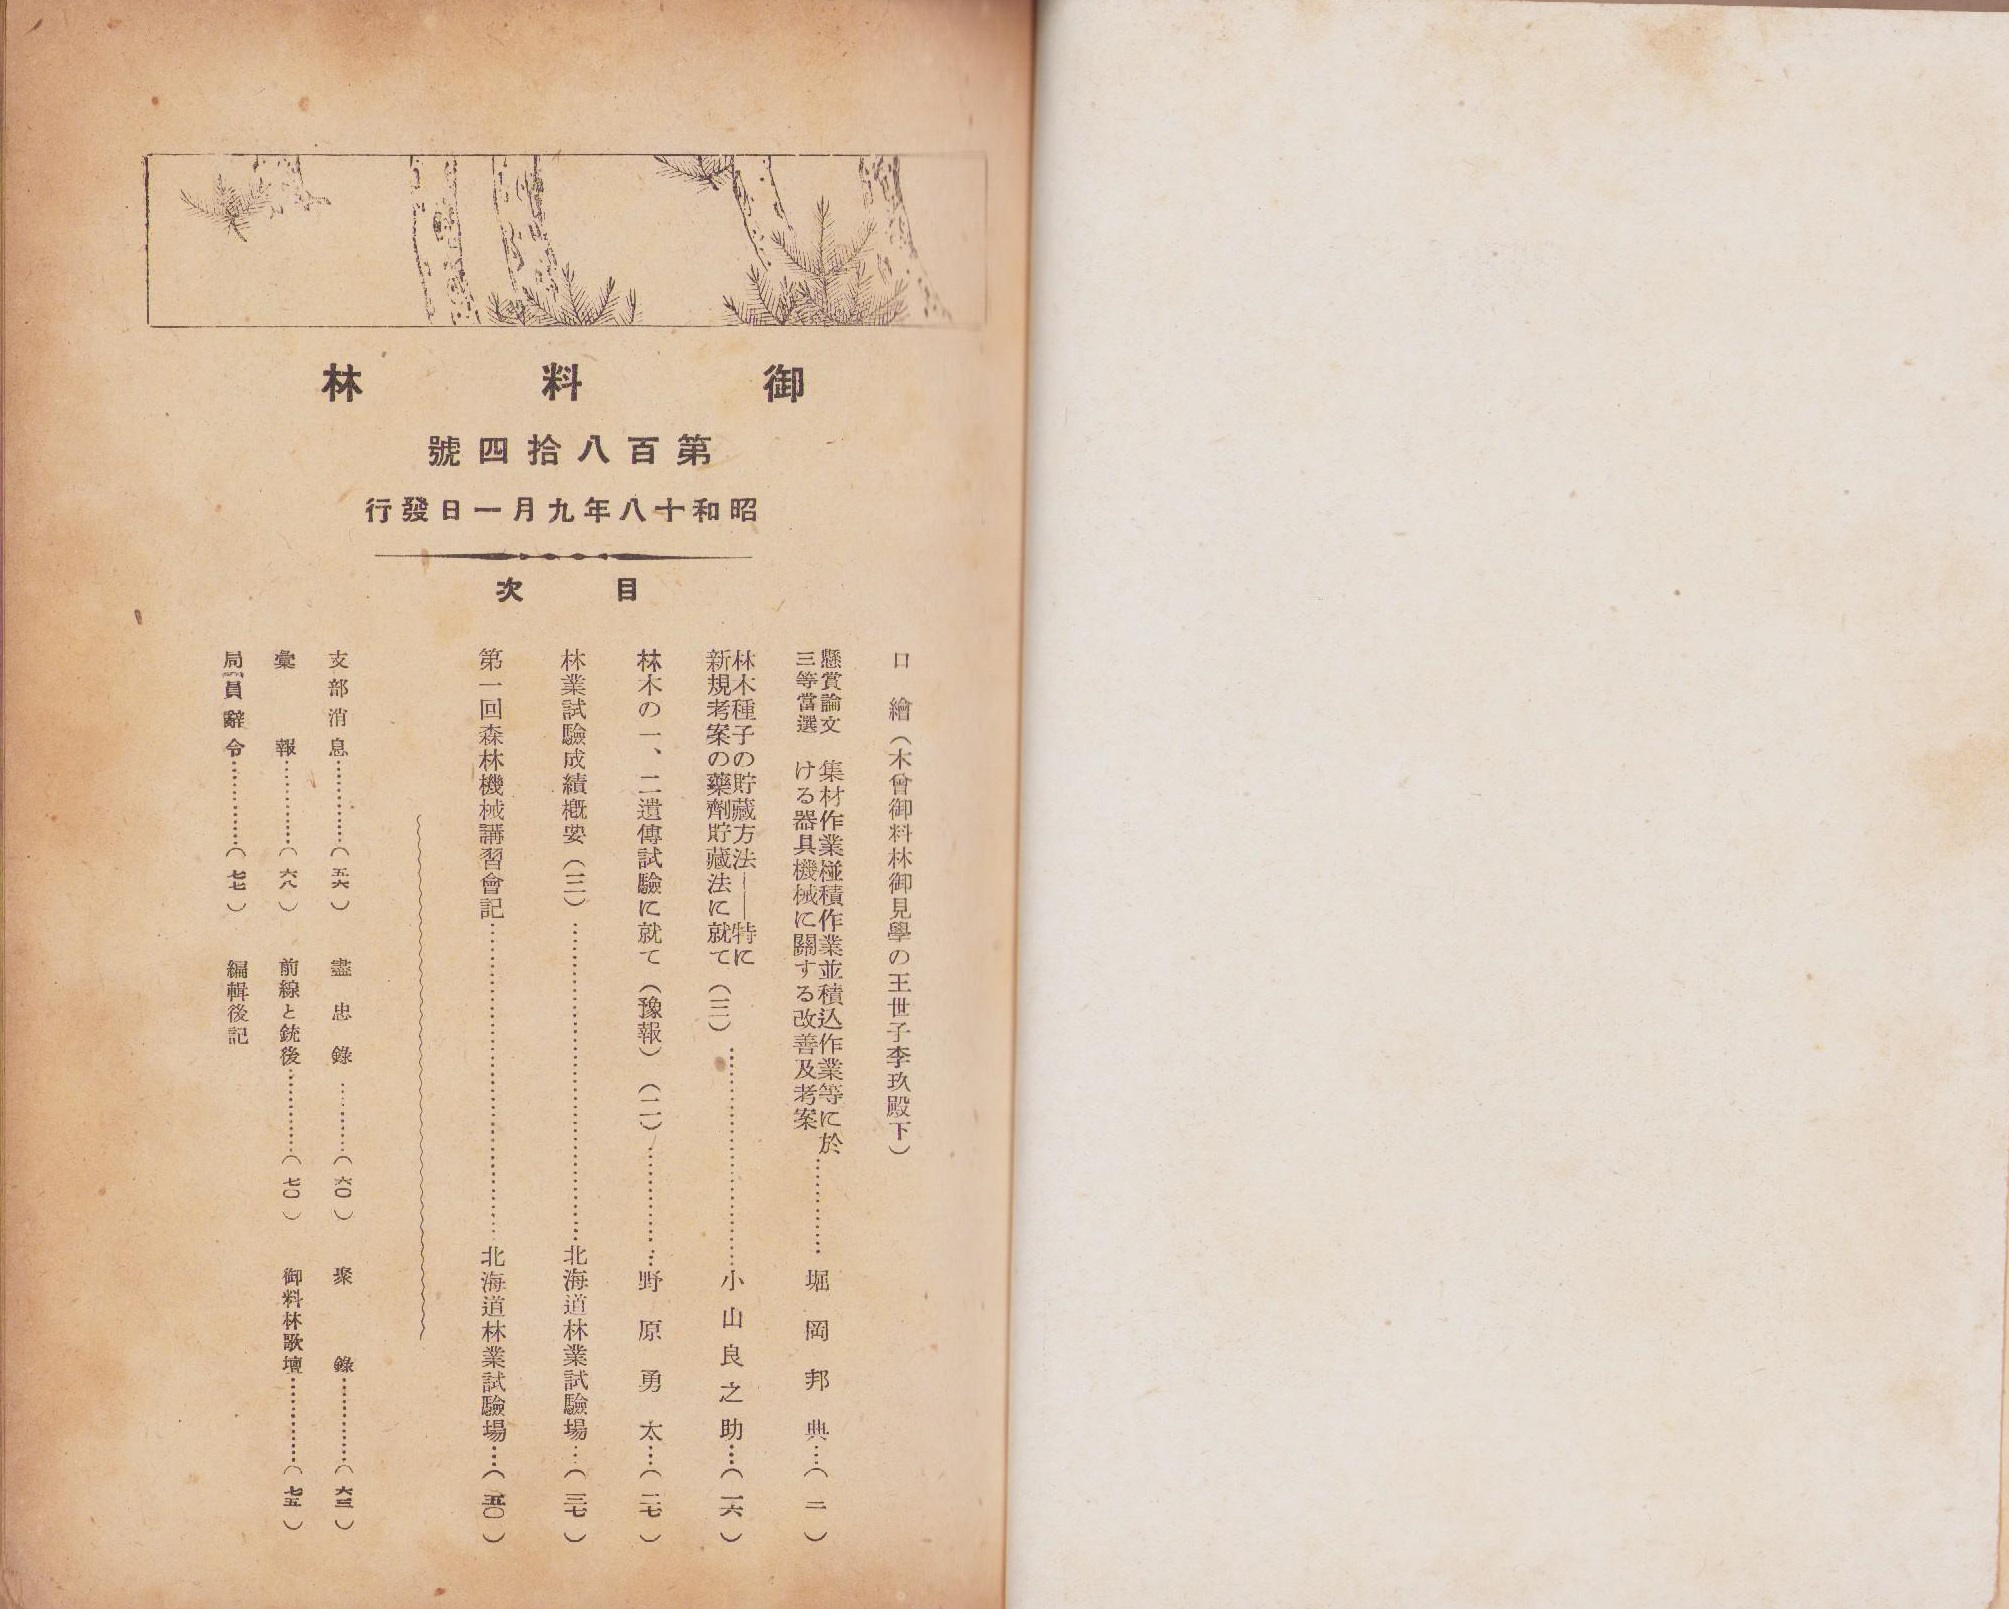 御料林
第百八拾四號
昭和十八年九月一日發行
目次
口繪（木曾御料林御見學の王世子李玖殿下）
懸賞論文三等當選 集材作業椪積作業並積込作業等に於ける器具機械に關する改善及考案…………堀岡邦典…（二）
林木種子の貯藏方法――特に新規考案の藥劑貯藏法に就て（三）…………小山良之助…（一六）
林木の一、二遺傳試驗に就て（豫報）（二）…………野原勇太…（二七）
林業試驗成績概要（三）…………北海道林業試驗場…（三七）
第一回森林機械講習會記…………北海道林業試驗場…（五〇）
支部消息…………（五六） 盡忠錄…………（六〇） 聚錄…………（六三）
彙報…………（六八） 前線と銃後…………（七〇） 御料林歌壇…………（七五）
局員辭令…………（七七） 編輯後記